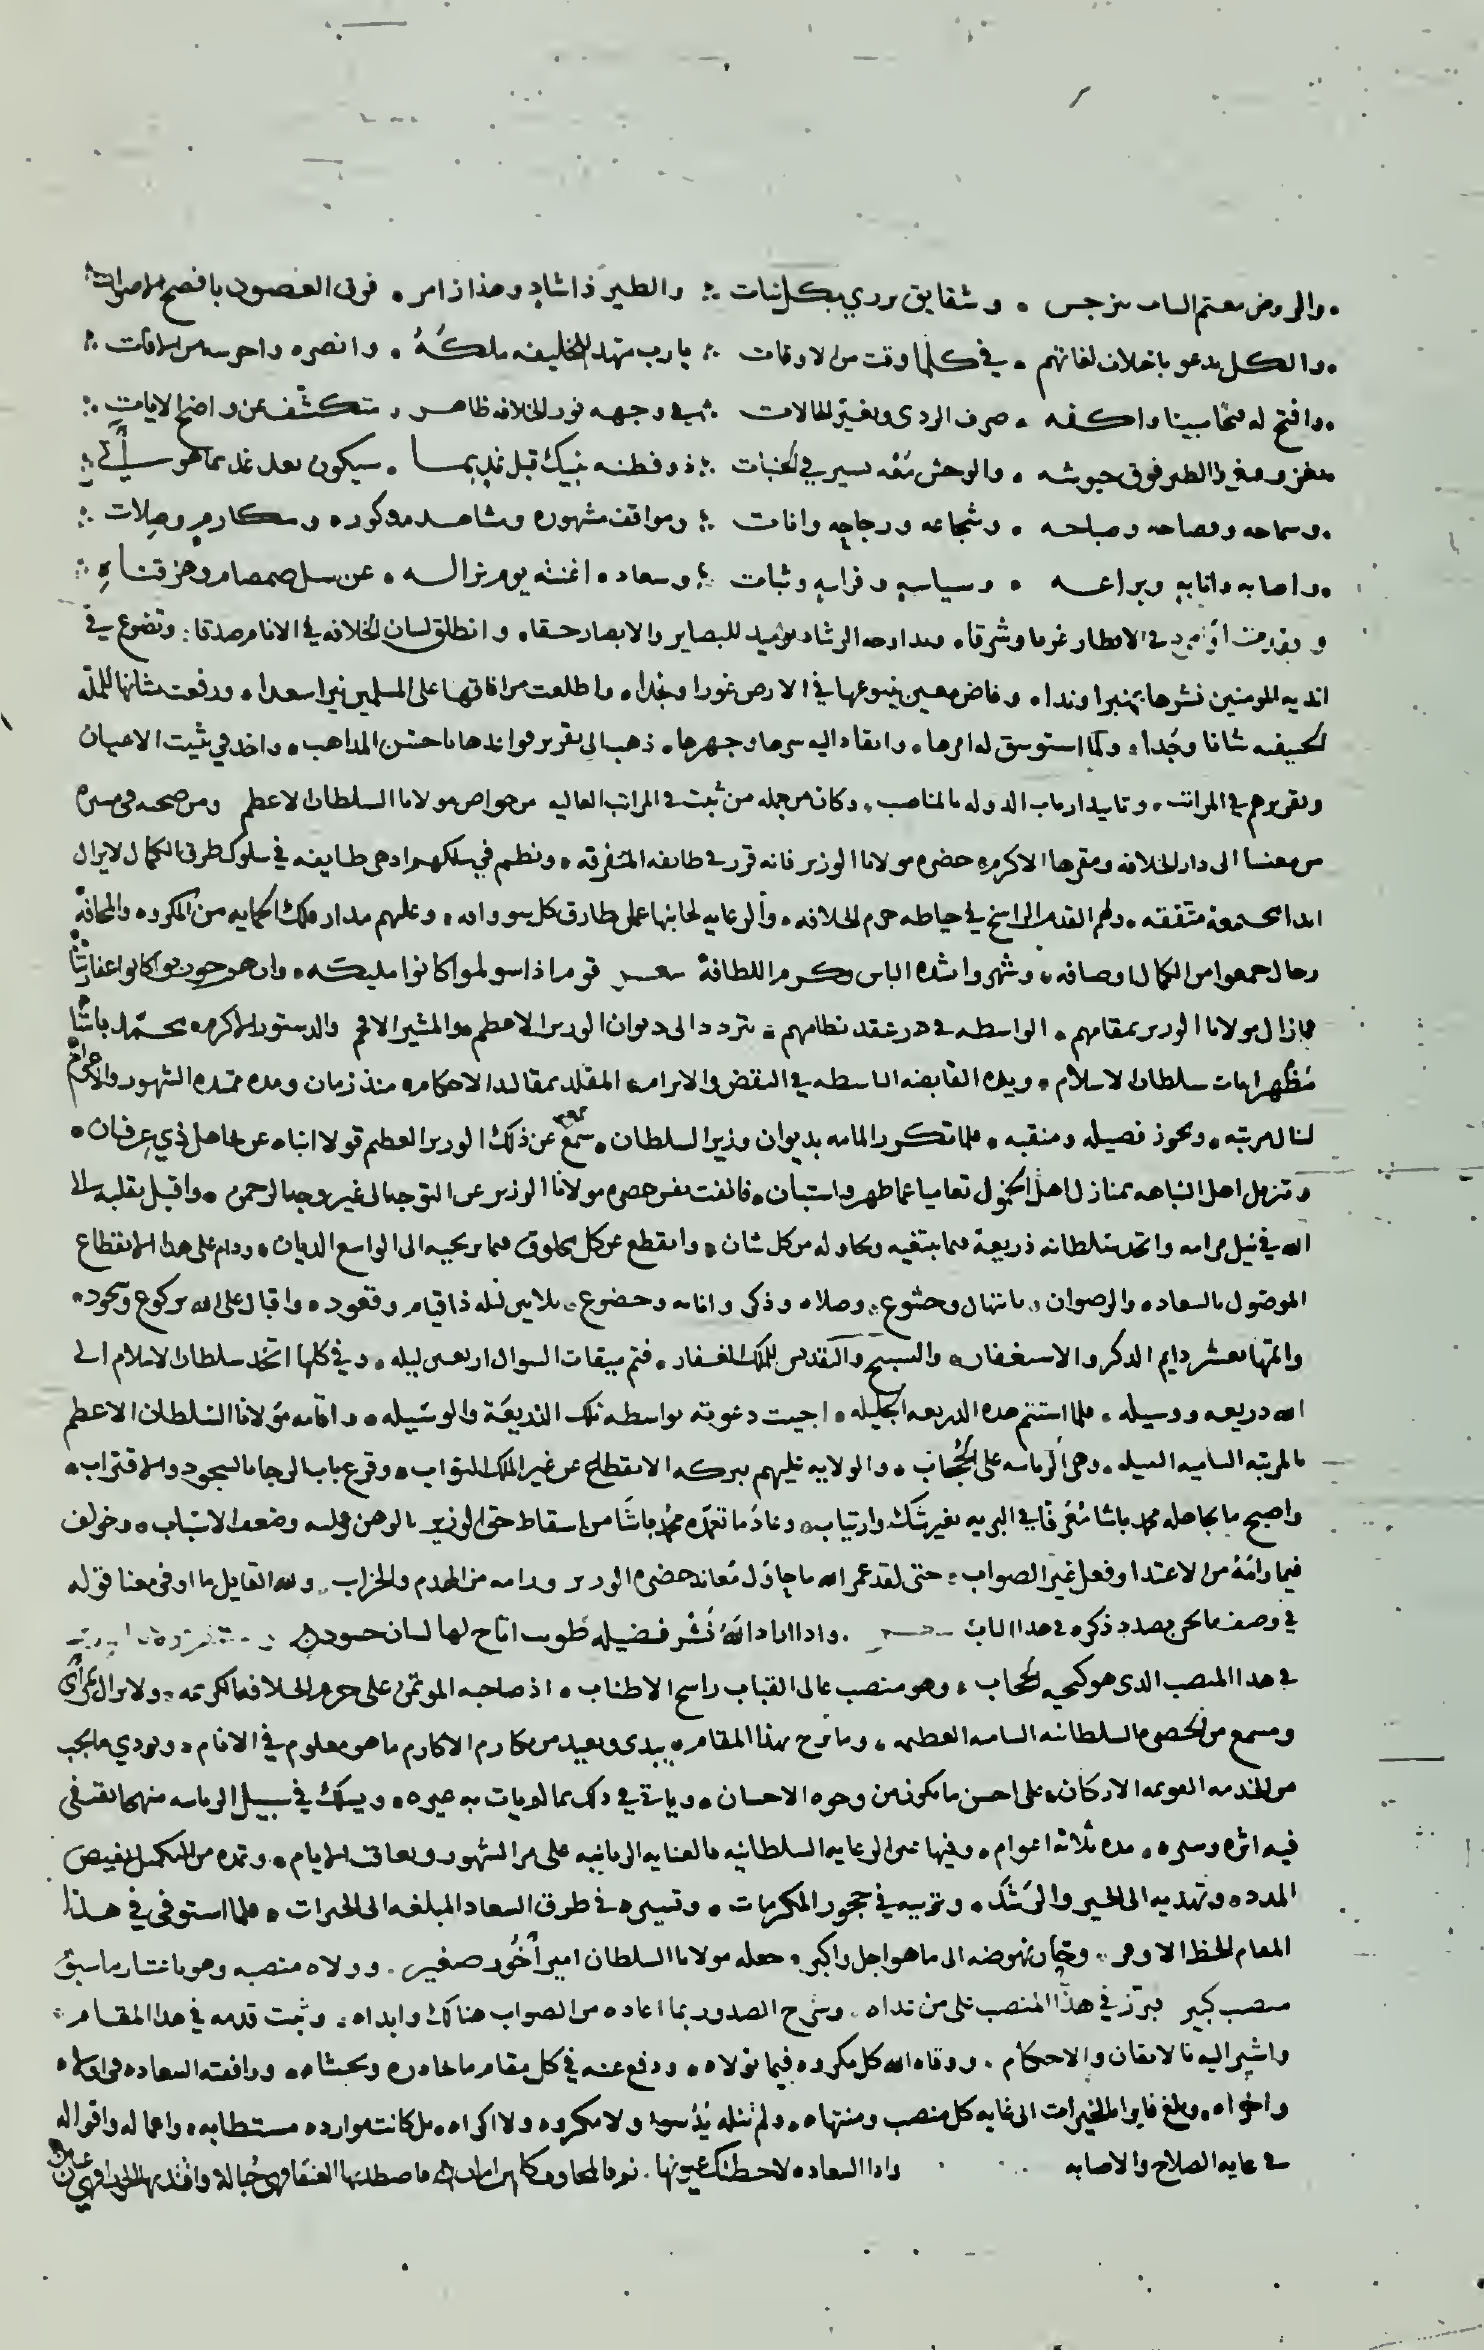 والروض معتم الساب بنرجس . وشقايق بردي بكل نبات ؛ والطير ذا شاد وهذا زامر . فوق الغصون بافصح الاصوات
والكل يدعو باختلاف لغاتهم . في كلما وقت من الاوقات ؛ يا رب مهد للخليفه ملكهُ . وانصره واحرسه من الافات ؛
وافتح له فتحا مبينا واكفه . صرف الردى وتغير الحالات ؛ في وجهه نور الخلافه ظاهر . متكشف عن واضح الايات ؛
يغزو ويغزوا الطير فوق جيوشه . والوحش معه يسير في الجنبات ؛ ذو فطنه ينبيك قبل غد بما . سيكون بعد غد بما هو آتي ؛
وسماحه وفصاحه وصباحه . وشجاعه ورجاحه واناة ؛ ومواقف مشهوره ومشاهد مذكوره . ومكارم وصلات ؛
واصابه وانابه وبراعه . وسياسه وفراسه وثبات ؛ وسعاده اغنته يوم نزاله . عن سل صمصام وهز قناه ؛
في الاقطار غربا وشرقا . الرشاد للبصاير والابصار حقا . وانطلق لسان الخلافه في الانام صدقا . وتضوع في
انديه المومنين نشرها عنبرا وندا . وفاض معين ينبوعها في الارض غورا ونجدا . واطلعت من افاقها على المسلمين نيرا سعدا . ورفعت بشانها للملة
الحنيفه شانا ومجدا . ولما استوسق له امرها . وانقاد اليه سرها وجهرها . ذهب الى تقرير قواعدها باحسن المذاهب . واخذ في تثبيت الاعيان
وتقريرهم في المراتب . وتاييد ارباب الدوله بالمناصب . وكان من جمله من ثبت في المراتب العاليه من خواص مولانا السلطان الاعظم ومن صحبه في مسيره
من مغنيسا الى دار الخلافه ومقرها الاكرم حضره مولانا الوزير فانه قرر في طايفه المتفرقه . ونظم في سلكهم اذ هي طايفه في سلوك طرق الكمال لا يزال
ابدا مجتمعة متفقه . ولهم القدم الراسخ في حياطه حرم الخلافه . والرعايه لجانبها على طارق كل سوء وافه . وعليهم مدار فلك الحمايه من المكروه والمخافة
رجال جمعوا من الكمال اوصافه . وشهروا بشده الباس وكرم اللطافة شعر قوم اذا سولموا كانوا مليكه . وان هم حوربوا كانوا عفاريتا
فما زال مولانا الوزير بمقامهم . الواسطه في در عقد نظامهم . يتردد الى ديوان الوزير الاعظم والمشير الافخم والدستور الاكرم محمد باشا
مُظهر ايات سلطان الاسلام . ويده القابضه الباسطه في النقض والابرام . المقلد بمقاليد الاحكام منذ زمان ومده ممتده الشهور والاعوام
لينال مرتبه . ويحوز فضيله ومنقبه . فلما تكرر المامه بديوان وزير السلطان . سمع عن ذلك الوزير العظيم قولا انباه عن تجاهل ذي عرفان .
وتنزيل اهل النباهه بمنازل اهل الخمول تعاميا عما ظهر واستبان . فانفت نفس حضره مولانا الوزير عن التوجه الى غير وجه الرحمن . واقبل بقلبه الى
الله في نيل مرامه واتخذ سلطانه ذريعة فيما يبتغيه ويحاوله من كل شان . وانقطع عن كل مخلوق فيما يرتجيه الى الواسع الديان . ودام على هذا الانقطاع
الموصول بالسعاده والرضوان . بابتهال وخشوع . وصلاه وذكر وانابه وخضوع . ثلاثين ليله ذا قيام وقعود . واقبال على الله بركوع وسجود .
واتمها بعشر دايم الذكر والاستغفار . والتسبيح والتقديس للملك الغفار . فتم ميقات السوال اربعين ليله . وفي كلها اتخذ سلطان الاسلام الى
الله ذريعه ووسيله . فلما استتم هذه الذريعه الجليله . اجيبت دعوته بواسطه تلك الذريعة والوسيله . واقامه مولانا السلطان الاعظم
بالمرتبه الساميه النبيله . وهي الرياسه على الحُجاب . والولايه عليهم ببركه الانقطاع عن غير الملك التواب . وقرع باب الرجا بالسجود والاقتراب .
واصبح ما تجاهله محمد باشا مُعَرفًا في البريه بغير شك وارتياب . وعاد ما تعمده محمد باشا من اسقاط حق الوزير بالوهن عليه وضعف الاسباب . وخولف
فيما رامَهُ من الاعتدا وفعل غير الصواب . حتى لقد عمر الله ما حاول مُعاند حضره الوزير ورامه من الهدم والخراب . ولله القايل ما اوفى معنا قوله
في وصف ما نحن بصدد ذكره في هذا الباب شعر واذا اراد الله نشر فضيله طويت اتاح لها لسان حسود
في هذا المنصب الذي هو كنحيه الحجاب . وهو منصب عالي القباب راسخ الاطناب . اذ صاحبه الموتمن على حرم الخلافه الكريمه . ولا يزال بمراى
ومسمع من الحضره السلطانيه الساميه العظيمه . وما برح بهذا المقام . يبدي ويعيد من مكارم الاكارم ما هو معلوم في الانام . ويودي ما يجب
من الخدمه القويمه الاركان . على احسن ما يكون من وجوه الاحسان . وياتي في ذلك بما لم يات به غيره . ويسلك في سبيل الرياسه منهجا يقتفى
فيه اثره وسيره . مده ثلاثه اعوام . وفيها عين الرعايه السلطانيه بالعنايه الربانيه على مر الشهور وتعاقب الايام . وتمده من التكميل بفيض
المدده وتهديه الى الخير والرشد . وتربيه في حجور المكرمات . وتسيره في طرق السعاده المبلغه الى الخيرات . فلما استوفى في هذا
المقام الحظ الاوفى . وحان نهوضه الى ما هو اجل واكبر . جعله مولانا السلطان امير آخُور صغير . وولاه منصبه وهو باعتبار ما سبق
منصب كبير فبرّز في هذا المنصب على من تعداه . وشرح الصدور بما اعاده من الصواب هناك وابداه . وثبت قدمه في هذا المقام .
واشير اليه بالاتقان والاحكام . ووقاه الله كل مكروه فيما تولاه . ودفع عنه في كل مقام ما يحاذره ويخشاه . ورافقته السعاده في اولاه
واخراه . وبلغ فايزا بالخيرات الى غايه كل منصب ومنتهاه . ولم تنله يد سوء ولا مكروه ولا اكراه . بل كانت موارده مستطابه . وافعاله واقواله
في غايه الصلاح والاصابه واذا السعاده لاحظتك عيونها . نم فالمخاوف كلهن امان واصطد بها العنقا فهي حبالة واقتد بها الجوزا فهي عنان